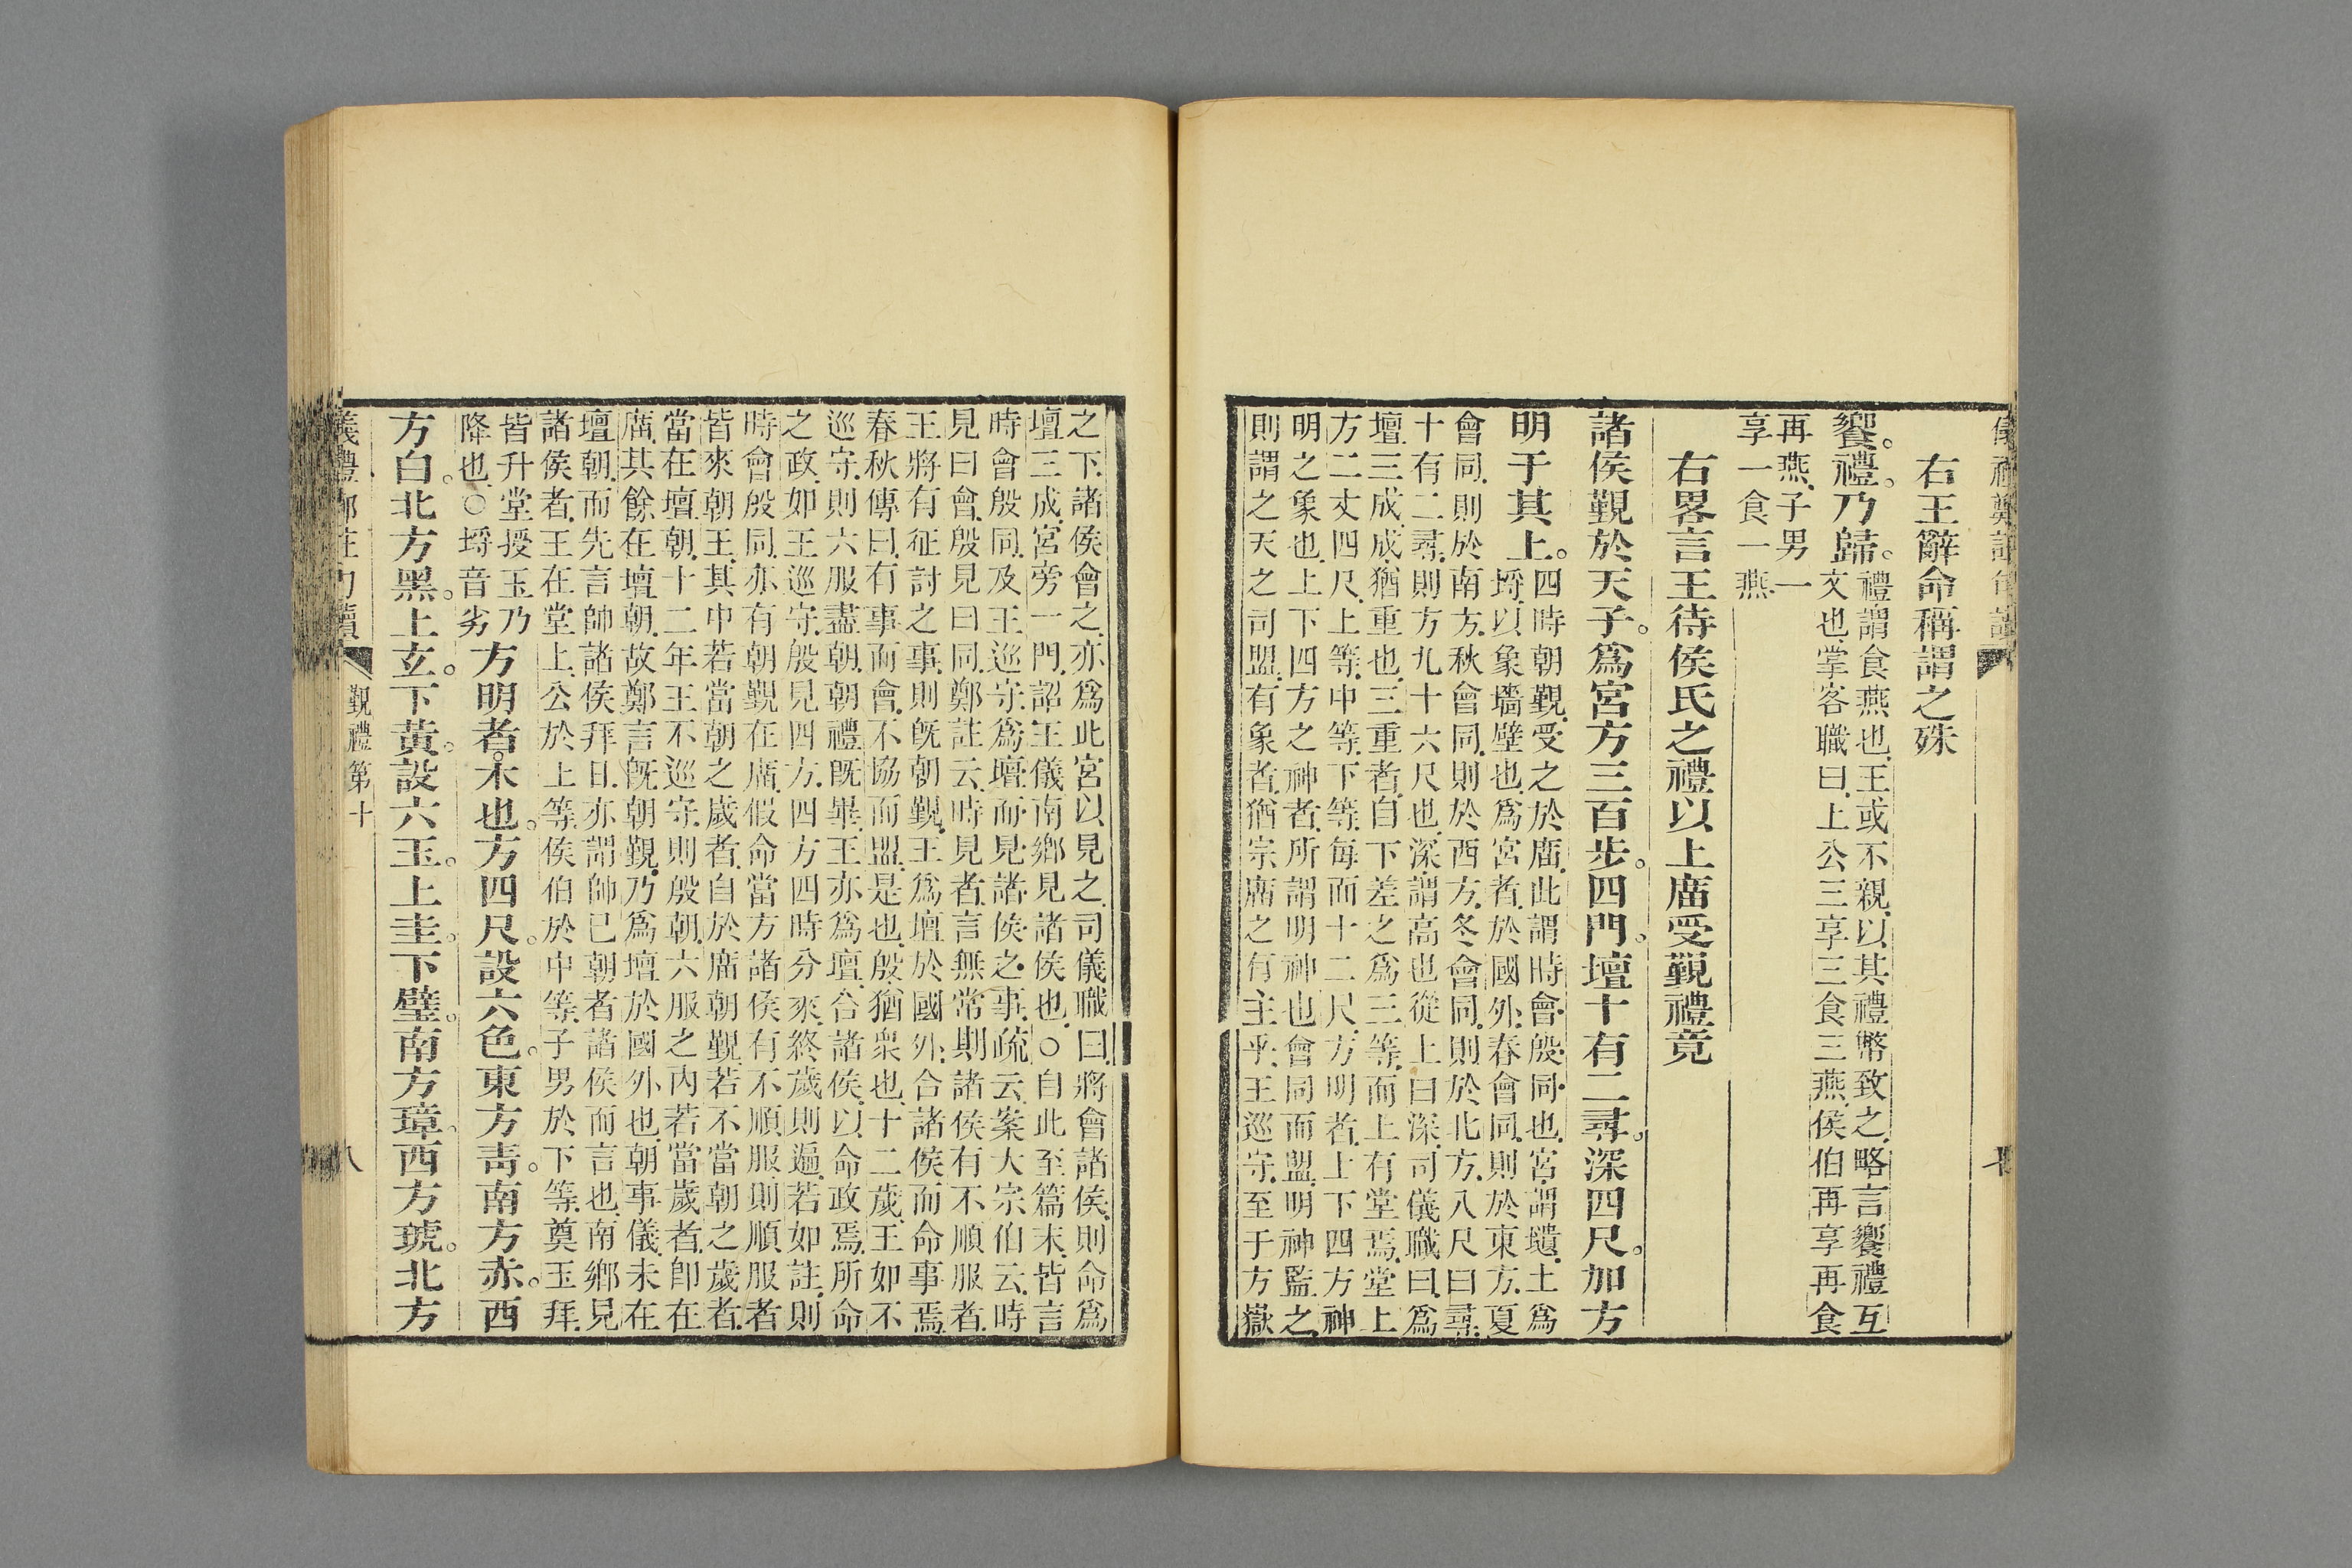 右王辭命稱謂之殊
饗。禮。乃歸。禮謂食燕也.王或不親.以其禮幣致之.略言饗禮互
文也.掌客職曰.上公三享三食三燕.侯伯再享再食
再燕.子男一
享一食一燕
右畧言王待侯氏之禮以上廟受覲禮竟
諸侯覲於天子。爲宮方三百步。四門。壇十有二尋。深四尺。加方
明于其上。四時朝覲.受之於廟.此謂時會殷同也.宮謂壝土爲
埓.以象墻壁也.爲宮者.於國外.春會同.則於東方.夏
會同.則於南方.秋會同.則於西方.冬會同.則於北方.八尺曰尋.
十有二尋.則方九十六尺也.深謂高也.從上曰深.司儀職曰.爲
壇三成.成猶重也.三重者.自下差之爲三等.而上有堂焉.堂上
方二丈四尺.上等.中等.下等.每面十二尺.方明者.上下四方神
明之象也.上下四方之神者.所謂明神也.會同而盟.明神監之.
則謂之天之司盟.有象者.猶宗廟之有主乎.王巡守.至于方嶽
之下.諸侯會之.亦爲此宮以見之.司儀職曰.將會諸侯.則命爲
壇三成.宮旁一門.詔王儀南鄉見諸侯也.○自此至篇末.皆言
時會殷同.及王巡守爲壇而見諸侯之事.疏云.案大宗伯云.時
見曰會.殷見曰同.鄭註云.時見者.言無常期.諸侯有不順服者.
王將有征討之事.則旣朝覲.王爲壇於國外.合諸侯而命事焉.
春秋傳曰.有事而會.不協而盟.是也.殷猶衆也.十二歲.王如不
巡守.則六服盡朝.朝禮旣畢.王亦爲壇.合諸侯.以命政焉.所命
之政.如王巡守.殷見四方.四方四時分來.終歲則遍.若如註.則
時會殷同.亦有朝覲在廟.假命當方諸侯有不順服.則順服者
皆來朝王.其中若當朝之歲者.自於廟朝覲.若不當朝之歲者.
當在壇朝.十二年王不巡守.則殷朝.六服之內.若當歲者.卽在
廟.其餘在壇朝.故鄭言旣朝覲.乃爲壇於國外也.朝事儀.未在
壇朝.而先言帥諸侯拜日.亦謂帥已朝者諸侯而言也.南鄉見
諸侯者.王在堂上.公於上等.侯伯於中等.子男於下等.奠玉拜.
皆升堂授玉乃
降也.○埓音劣
方明者。木也。方四尺。設六色。東方靑。南方赤。西
方白。北方黑。上玄。下黃。設六玉。上圭。下璧。南方璋。西方琥。北方
儀禮鄭註句讀 覲禮第十 八